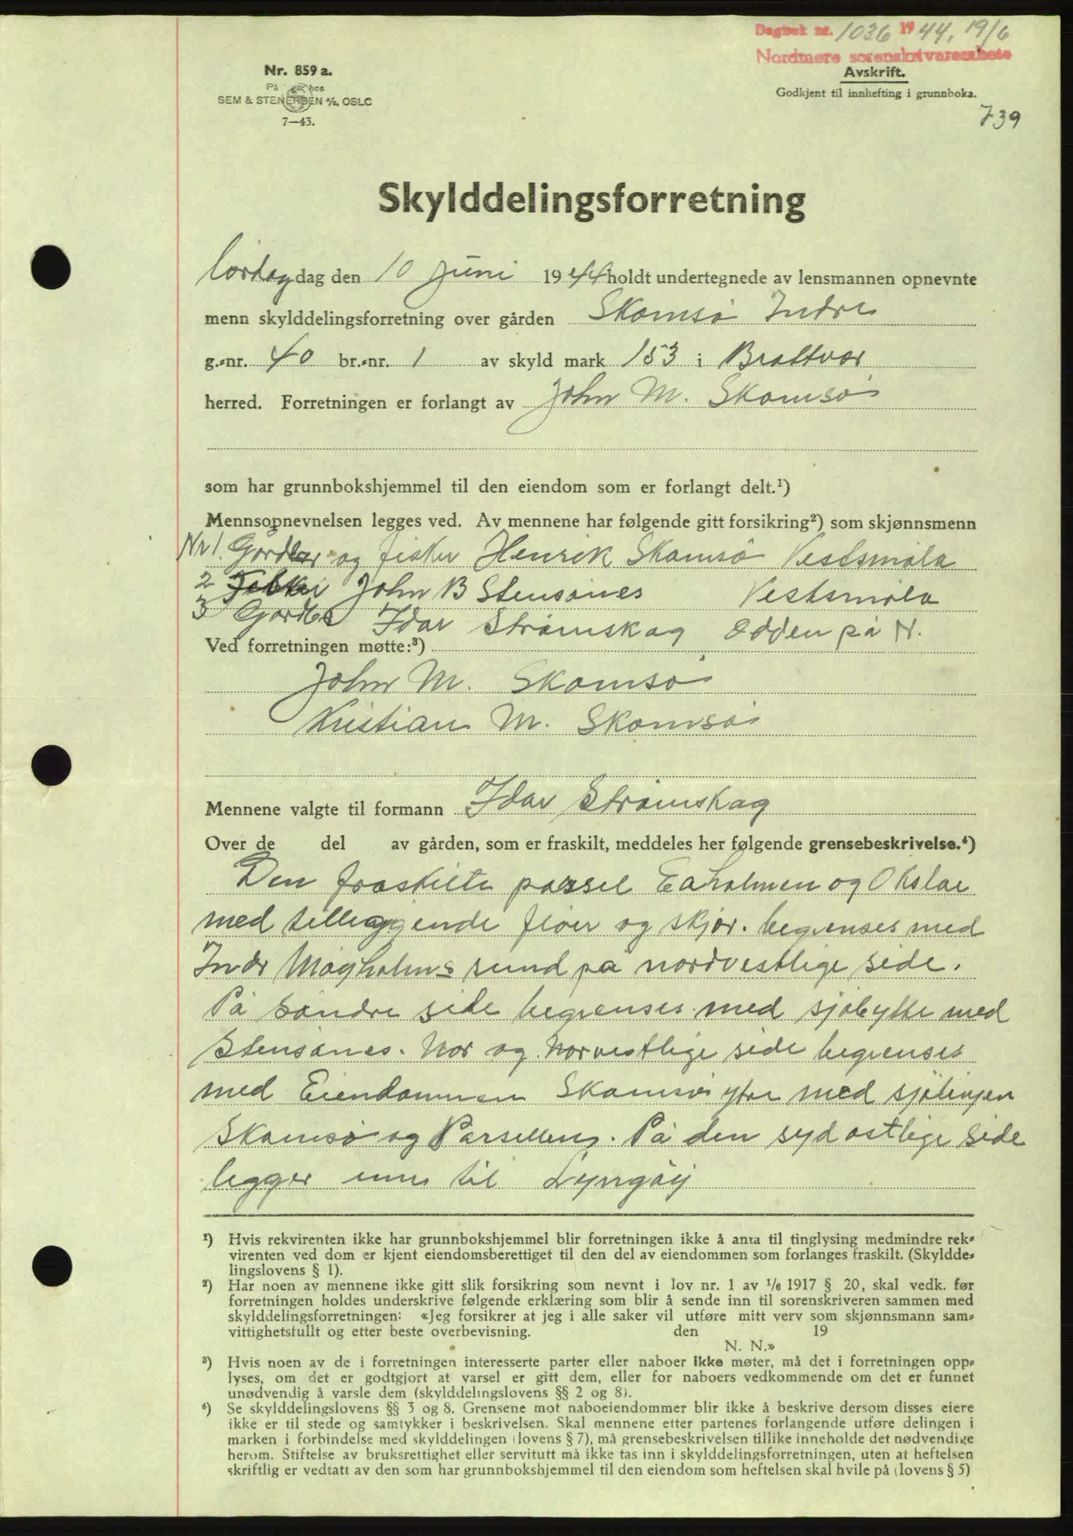 Dagbok nr. 1036 1944, 19/6
Nordmøre sorenskriverembete
Nr. 859 a.
På lager hos
SEM & STENERSEN A/S, OSLO
7—43.
Avskrift.
Godkjent til innhefting i grunnboka.
739
Skylddelingsforretning
Lørdag dag den 10 Juni 1944 holdt undertegnede av lensmannen opnevnte
menn skylddelingsforretning over gården Skomsø Indre
g.-nr. 40 br.-nr. 1 av skyld mark 153 i Brattvær
herred. Forretningen er forlangt av John M. Skomsø
som har grunnbokshjemmel til den eiendom som er forlangt delt.¹)
Mennsopnevnelsen legges ved. Av mennene har følgende gitt forsikring²) som skjønnsmenn
Nr 1. Gårdbr og fisker Henrik Skomsø Vestsmøla
2 Fisker John B Stensønes Vestsmøla
3 Gårdbr Idar Strømskag Odden på N.
Ved forretningen møtte:³)
John M. Skomsø
Kristian M. Skomsø
Mennene valgte til formann Idar Strømskag
Over de del av gården, som er fraskilt, meddeles her følgende grensebeskrivelse.⁴)
Den fraskilte parsel Eaholmen og Okslar
med tilliggende fløer og skjør. begrenses med
Indr Magholms sund på nordvestlige side.
På søndre side begrenses med sjøbytte med
Stensønes. Nor og Norvestlige side begrenses
med Eiendommen Skomsø ytre med sjølinjen
Skomsø og Parsellens. På den sydostlige side
legger inn til Lyngøy
¹) Hvis rekvirenten ikke har grunnbokshjemmel blir forretningen ikke å anta til tinglysing medmindre rek-
virenten ved dom er kjent eiendomsberettiget til den del av eiendommen som forlanges fraskilt. (Skyldde-
lingslovens § 1).
²) Har noen av mennene ikke gitt slik forsikring som nevnt i lov nr. 1 av ¹/₆ 1917 § 20, skal vedk. før
forretningen holdes underskrive følgende erklæring som blir å sende inn til sorenskriveren sammen med
skylddelingsforretningen: «Jeg forsikrer at jeg i alle saker vil utføre mitt verv som skjønnsmann sam-
vittighetsfullt og etter beste overbevisning. den 19
N. N.»
³) Hvis noen av de i forretningen interesserte parter eller naboer ikke møter, må det i forretningen opp-
lyses, om det er godtgjort at varsel er gitt dem, eller for naboers vedkommende om det er funnet
unødvendig å varsle dem (skylddelingslovens §§ 2 og 8).
⁴) Se skylddelingslovens §§ 3 og 8. Grensene mot naboeiendommer blir ikke å beskrive dersom disses eiere
ikke er til stede og samtykker i beskrivelsen. Skal mennene etter partenes forlangende utføre delingen i
marken i forbindelse med skylddelingen (lovens § 7), må grensebeskrivelsen tillike inneholde det nødvendige
herom. Stiftelse av bruksrettighet eller servitutt må ikke tas inn i skylddelingsforretningen, uten at heftelsen
skriftlig er vedtatt av den som har grunnbokshjemmel til den eiendom som heftelsen skal hvile på (lovens § 5)